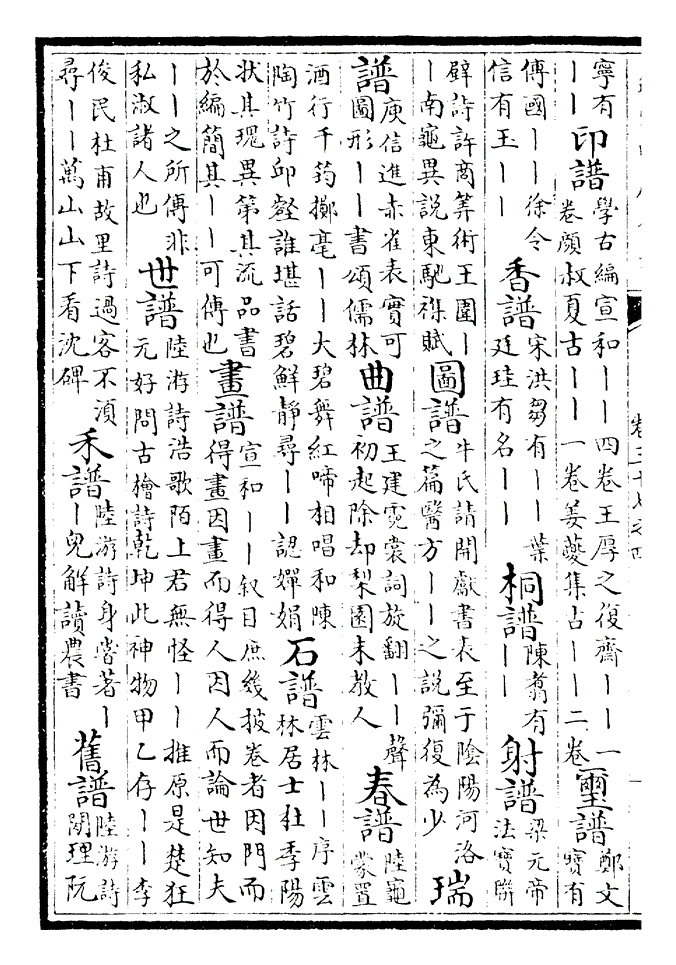 寧有丨丨印譜學古編宣和丨丨四卷王厚之復齋丨丨一卷顏叔夏古丨丨一卷姜夔集古丨丨二卷璽譜鄭文寶有
傳國丨丨徐令信有玉丨丨香譜宋洪芻有丨丨葉廷珪有名丨丨桐譜陳翥有丨丨射譜梁元帝法寶聯
璧詩許商筭術王圍丨丨南龜異說東馳祩賦圖譜牛氏請開獻書表至于陰陽河洛之篇醫方丨丨之說彌復為少瑞
譜庾信進赤雀表實可圖形丨丨書頌儒林曲譜王建霓裳詞旋翻丨丨聲初起除却梨園未教人春譜陸龜蒙置
酒行千筠擲毫丨丨大碧舞紅啼相唱和陳陶竹詩邱壑誰堪話碧鮮靜尋丨丨認嬋娟石譜雲林丨丨序雲林居士杜季陽
狀其瑰異第其流品書於編簡其丨丨可傳也畫譜宣和丨丨叙目庶幾披卷者因門而得畫因畫而得人因人而論世知夫
丨丨之所傳非私淑諸人也世譜陸游詩浩歌陌上君無怪丨丨推原是楚狂元好問古檜詩乾坤此神物甲乙存丨丨李
俊民杜甫故里詩過客不須尋丨丨萬山山下看沈碑禾譜陸游詩身嘗著丨丨兒解讀農書舊譜陸游詩關理阮